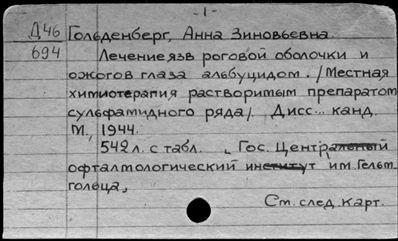 - 1 -
Д46 Гольденберг, Анна Зиновьевна
694 Лечение язв роговой оболочки и
ожогов глаза альбуцидом. /Местная
химиотерапия растворимым препаратом
сульфамидного ряда/. Дисс... канд.
М., 1944.
542 л. с табл. „Гос. Центральный
офталмологический институт им. Гельм-
голеца„
См. след. карт.